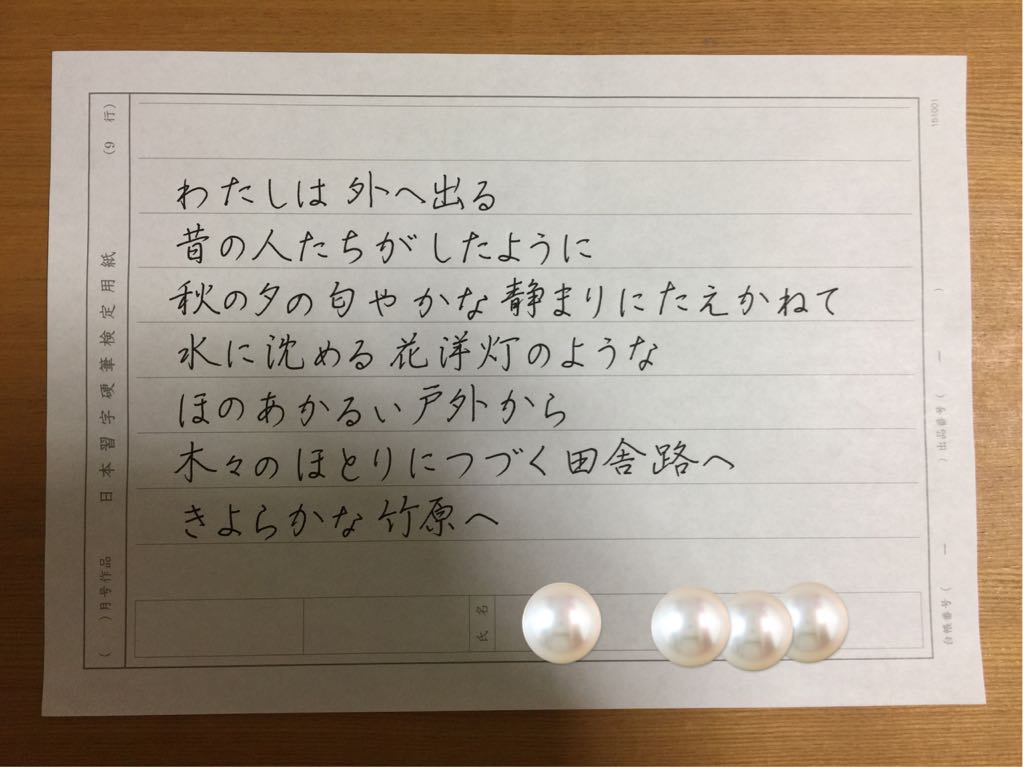 わたしは外へ出る
昔の人たちがしたように
秋の夕の匂やかな静まりにたえかねて
水に沈める花洋灯のような
ほのあかるい戸外から
木々のほとりにつづく田舎路へ
きよらかな竹原へ
(9 行)
日本習字硬筆検定用紙
( )月号作品
氏名
151001
( ー ) 出品番号
台帳番号 ( ー )